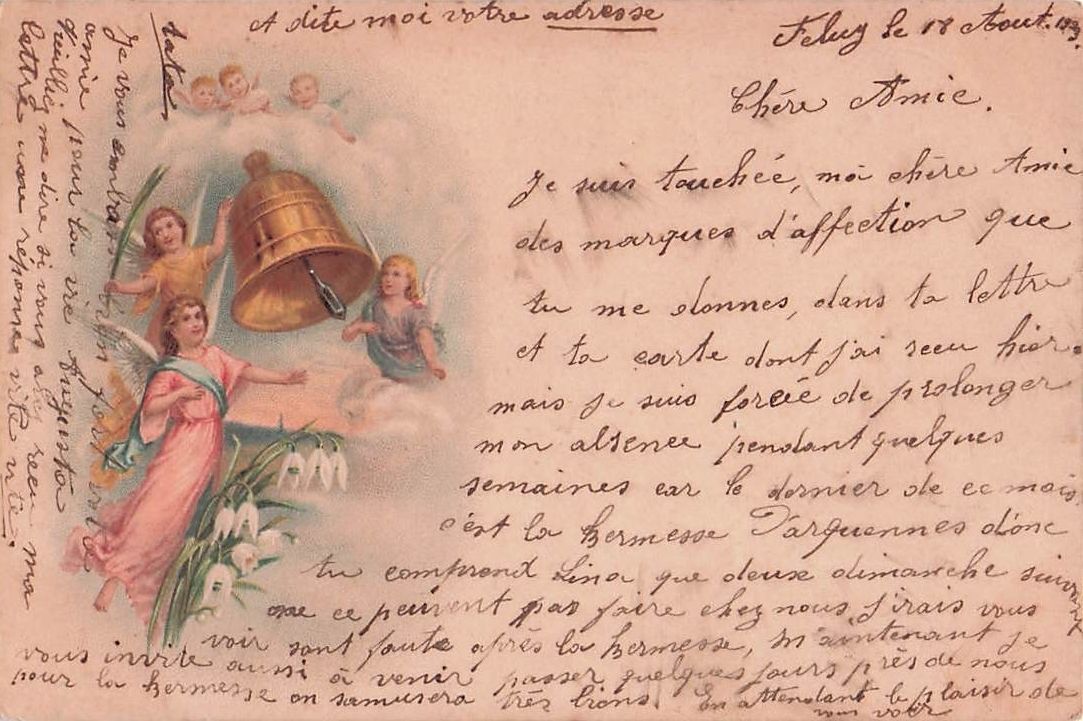 Feluy le 18 Aout.
Chère Amie.
Je suis touchée, ma chère Amie
des marques d'affection que
tu me donnes, dans ta lettre
et ta carte dont j'ai recu hier.
mais je suis forcée de prolonger
mon absence pendant quelques
semaines car le dernier de ce mois
c'est la kermesse D'arquennes donc
tu comprend Lina que deux dimanche suivant
ne ce peuvent pas faire chez nous j'irais vous
voir sont faute après la kermesse, M'aintenant je
vous invite aussi à venir passer quelques jours près de nous
pour la kermesse on samusera très bions. En attendant le plaisir de
vous voir
Je vous embrasse bien fort votre
amie pour la vie Augusta
Veuilliez me dire si vous avez recu ma
lettre une réponse vite vite.
tata
et dite moi votre adresse